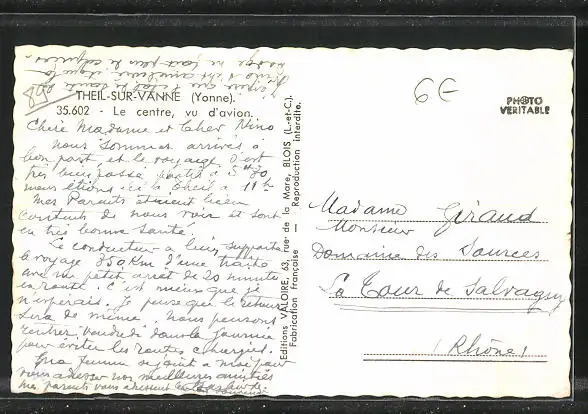 6€
PHOTO
VERITABLE
THEIL-SUR-VANNE (Yonne).
35.602 - Le centre, vu d'avion.
Chère Madame et Cher Nino
Nous sommes arrivés à
bon port et le voyage s'est
très bien passé partis à 5 H 30
nous étions ici à Theil à 11 h
Mes Parents étaient bien
contents de nous voir et sont
en très bonne santé.
Le conducteur a bien supporté
le voyage 350 Km d'une traite
avec un petit arrêt de 20 minutes
en route. C'est mieux que je
n'espérais. Je pense que le retour
sera de même. Nous pensons
rentrer Vendredi dans la journée
pour éviter les routes chargées.
Ma femme se joint à moi pour
vous adresser nos meilleures amitiés
mes parents vous adressent
Editions VALOIRE, 63, rue de la Mare, BLOIS (L.-et-C.).
Fabrication française — Reproduction interdite.
Madame Giraud
Monsieur
Domaine des Sources
La Tour de Salvagny
(Rhône)